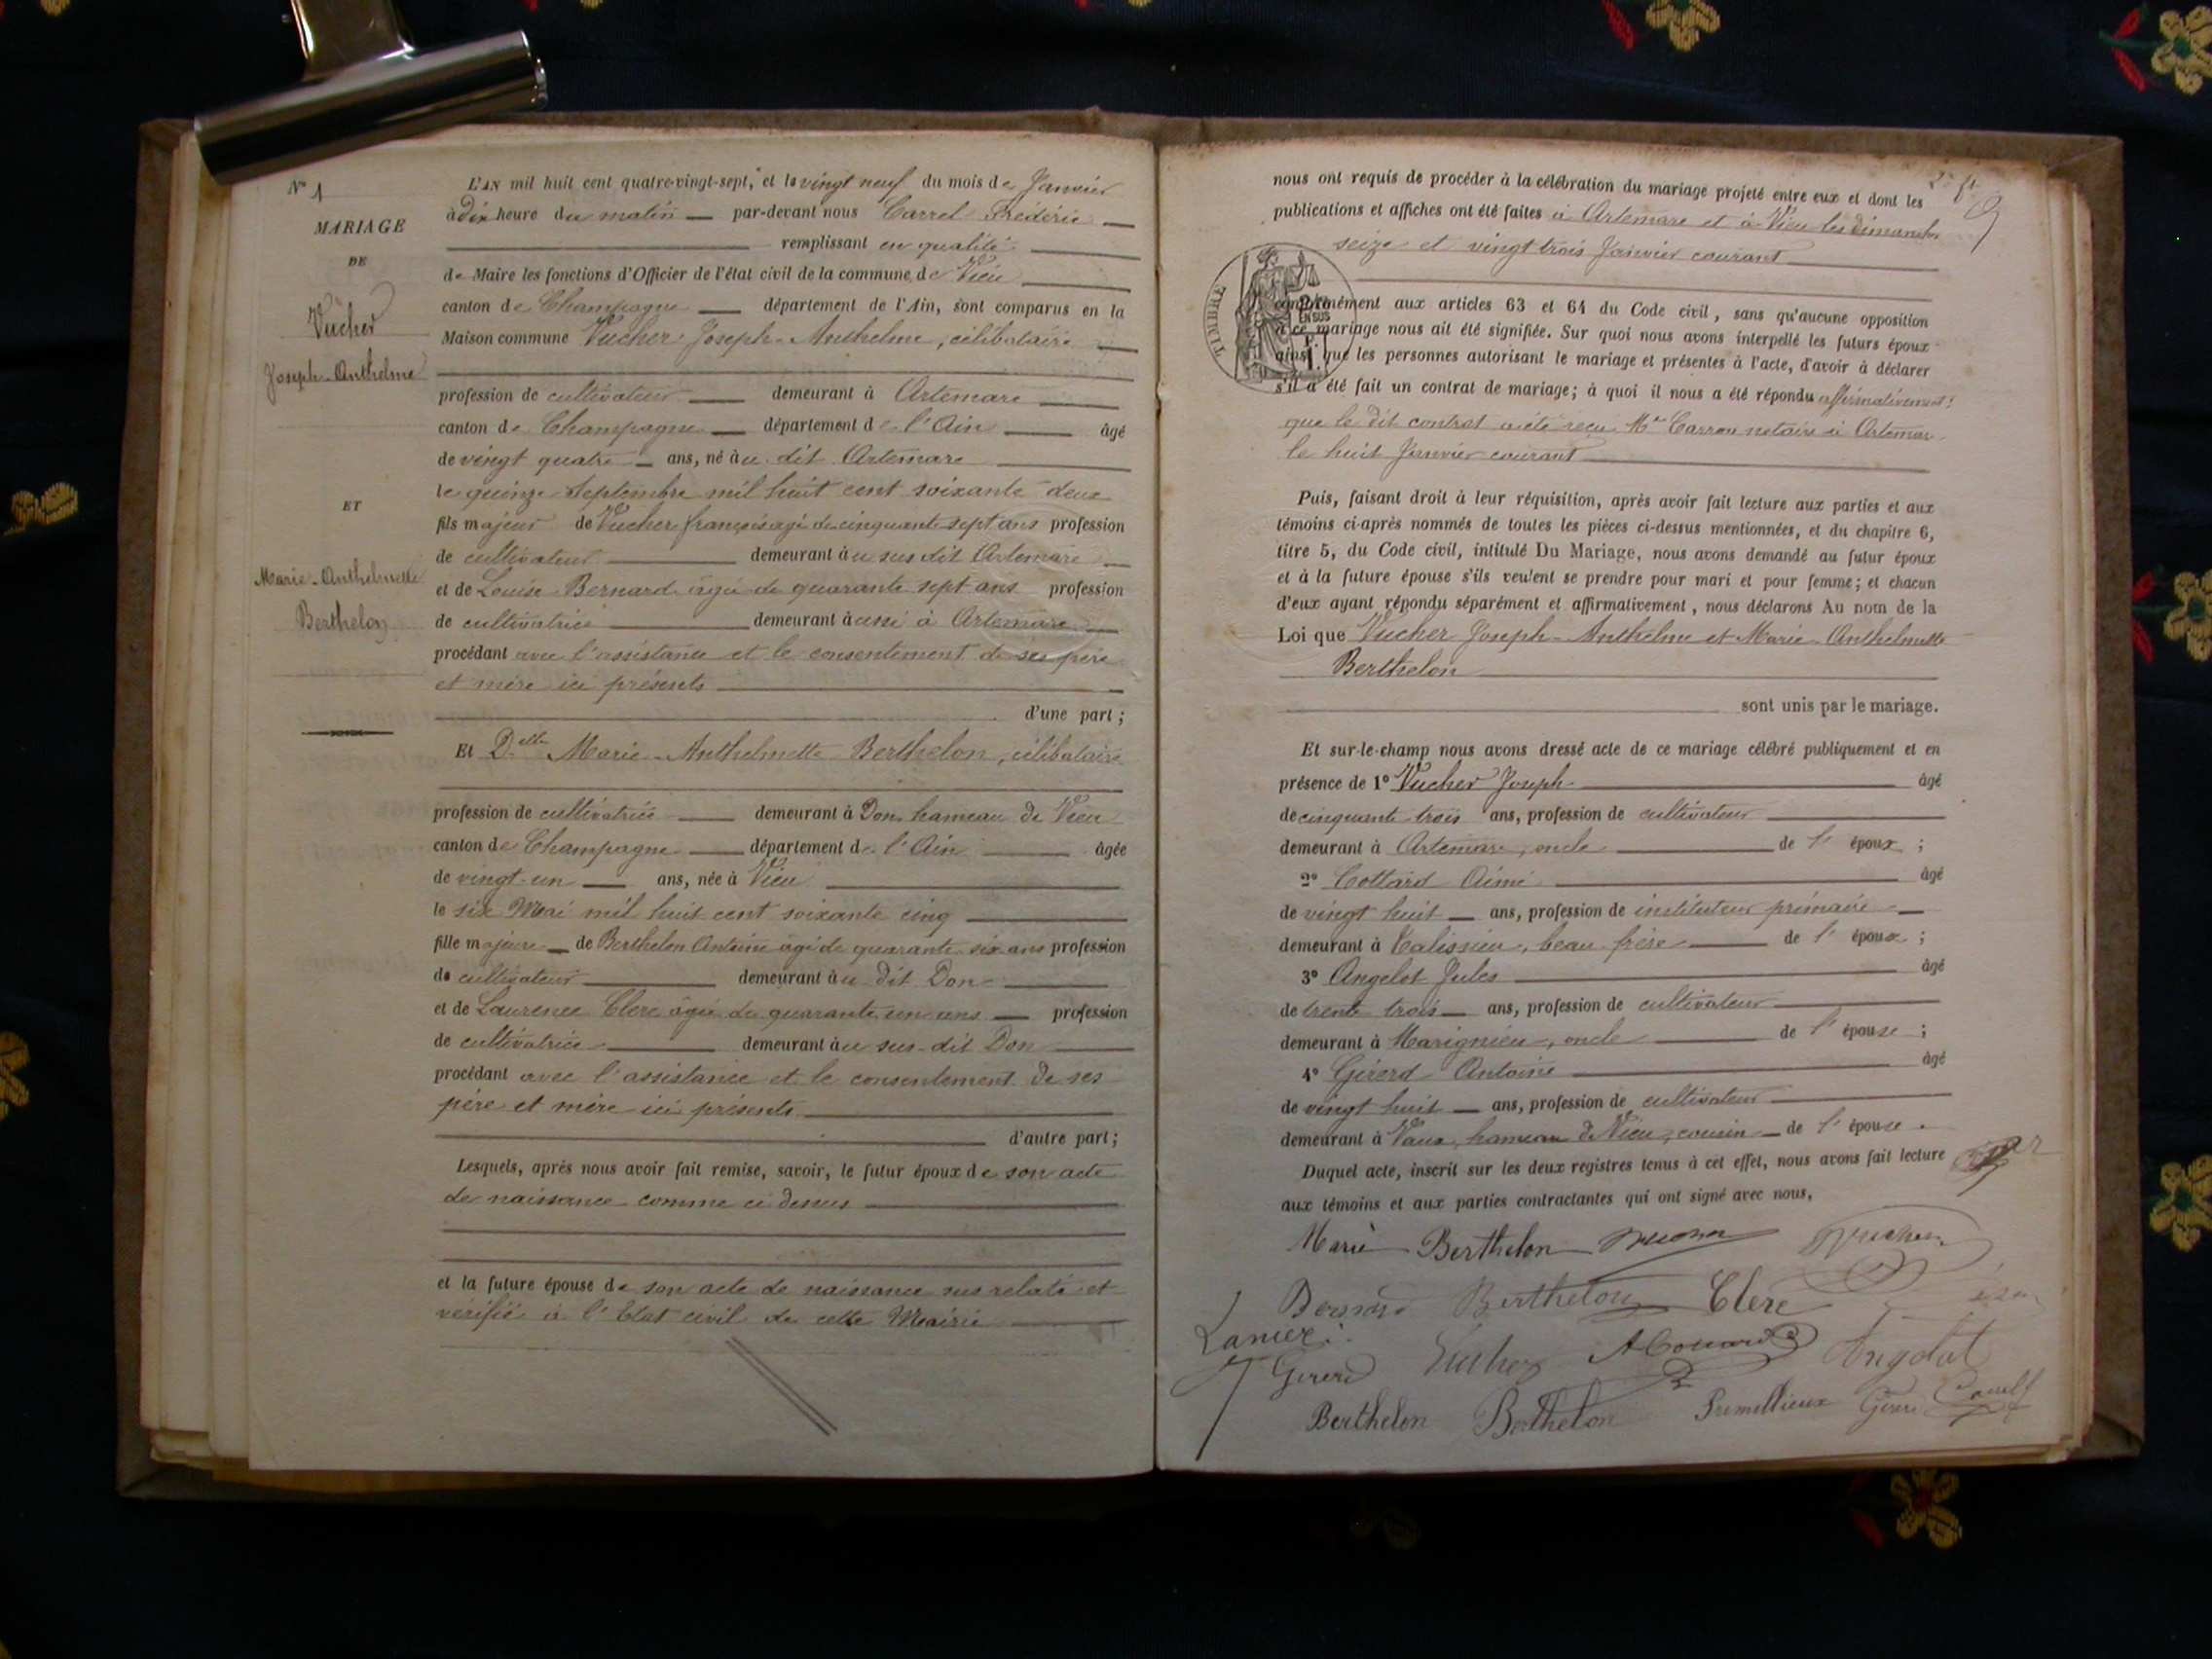 N° 1
MARIAGE
DE
Vucher
Joseph-Anthelme
ET
Marie-Anthelmette
Berthelon
L'AN mil huit cent quatre-vingt-sept, et le vingt neuf du mois de Janvier
à dix heure du matin par-devant nous Carrel Frédéric
remplissant en qualité
de Maire les fonctions d'Officier de l'état civil de la commune de Vieu
canton de Champagne département de l'Ain, sont comparus en la
Maison commune Vucher Joseph-Anthelme, célibataire
profession de cultivateur demeurant à Artemare
canton de Champagne département de l'Ain âgé
de vingt quatre ans, né à u dit Artemare
le quinze Septembre mil huit cent soixante deux
fils majeur de Vucher françois agé de cinquante sept ans profession
de cultivateur demeurant à u sus dit Artemare
et de Louise Bernard âgée de quarante sept ans profession
de cultivatrice demeurant à ussi à Artemare
procédant avec l'assistance et le consentement de ses père
et mère ici présents
d'une part ;
Et Delle Marie-Anthelmette Berthelon, célibataire
profession de cultivatrice demeurant à Don hameau de Vieu
canton de Champagne département de l'Ain âgée
de vingt-un ans, née à Vieu
le six Mai mil huit cent soixante cinq
fille majeure de Berthelon Antoine âgé de quarante six ans profession
de cultivateur demeurant à u dit Don
et de Laurence Clerc âgée de quarante un ans profession
de cultivatrice demeurant à u sus-dit Don
procédant avec l'assistance et le consentement de ses
père et mère ici présents
d'autre part ;
Lesquels, après nous avoir fait remise, savoir, le futur époux de son acte
de naissance comme ci dessus
et la future épouse de son acte de naissance sus relaté et
vérifié à l'Etat civil de cette Mairie
nous ont requis de procéder à la célébration du mariage projeté entre eux et dont les
publications et affiches ont été faites à Artemare et à Vieu les dimanches
seize et vingt trois Janvier courant
TIMBRE
conformément aux articles 63 et 64 du Code civil, sans qu'aucune opposition
à ce mariage nous ait été signifiée. Sur quoi nous avons interpellé les futurs époux
ainsi que les personnes autorisant le mariage et présentes à l'acte, d'avoir à déclarer
s'il a été fait un contrat de mariage; à quoi il nous a été répondu affirmativement:
que le dit contrat a été reçu Me Carron notaire à Artemare
le huit Janvier courant
Puis, faisant droit à leur réquisition, après avoir fait lecture aux parties et aux
témoins ci-après nommés de toutes les pièces ci-dessus mentionnées, et du chapitre 6,
titre 5, du Code civil, intitulé Du Mariage, nous avons demandé au futur époux
et à la future épouse s'ils veulent se prendre pour mari et pour femme; et chacun
d'eux ayant répondu séparément et affirmativement, nous déclarons Au nom de la
Loi que Vucher Joseph-Anthelme et Marie-Anthelmette
Berthelon
sont unis par le mariage.
Et sur-le-champ nous avons dressé acte de ce mariage célébré publiquement et en
présence de 1° Vucher Joseph âgé
de cinquante trois ans, profession de cultivateur
demeurant à Artemare, oncle de l' époux ;
2° Cottard Aimé âgé
de vingt huit ans, profession de instituteur primaire
demeurant à Talissieu, beau frère de l' époux ;
3° Angelot Jules âgé
de trente trois ans, profession de cultivateur
demeurant à Marignieu, oncle de l' épouse ;
4° Girerd Antoine âgé
de vingt huit ans, profession de cultivateur
demeurant à Vaux, hameau de Vieu, cousin de l' épouse.
Duquel acte, inscrit sur les deux registres tenus à cet effet, nous avons fait lecture
aux témoins et aux parties contractantes qui ont signé avec nous,
Marie Berthelon Vucher
Bernard Berthelon Clerc
Girerd Vucher Angelot
Berthelon Berthelon Premillieux